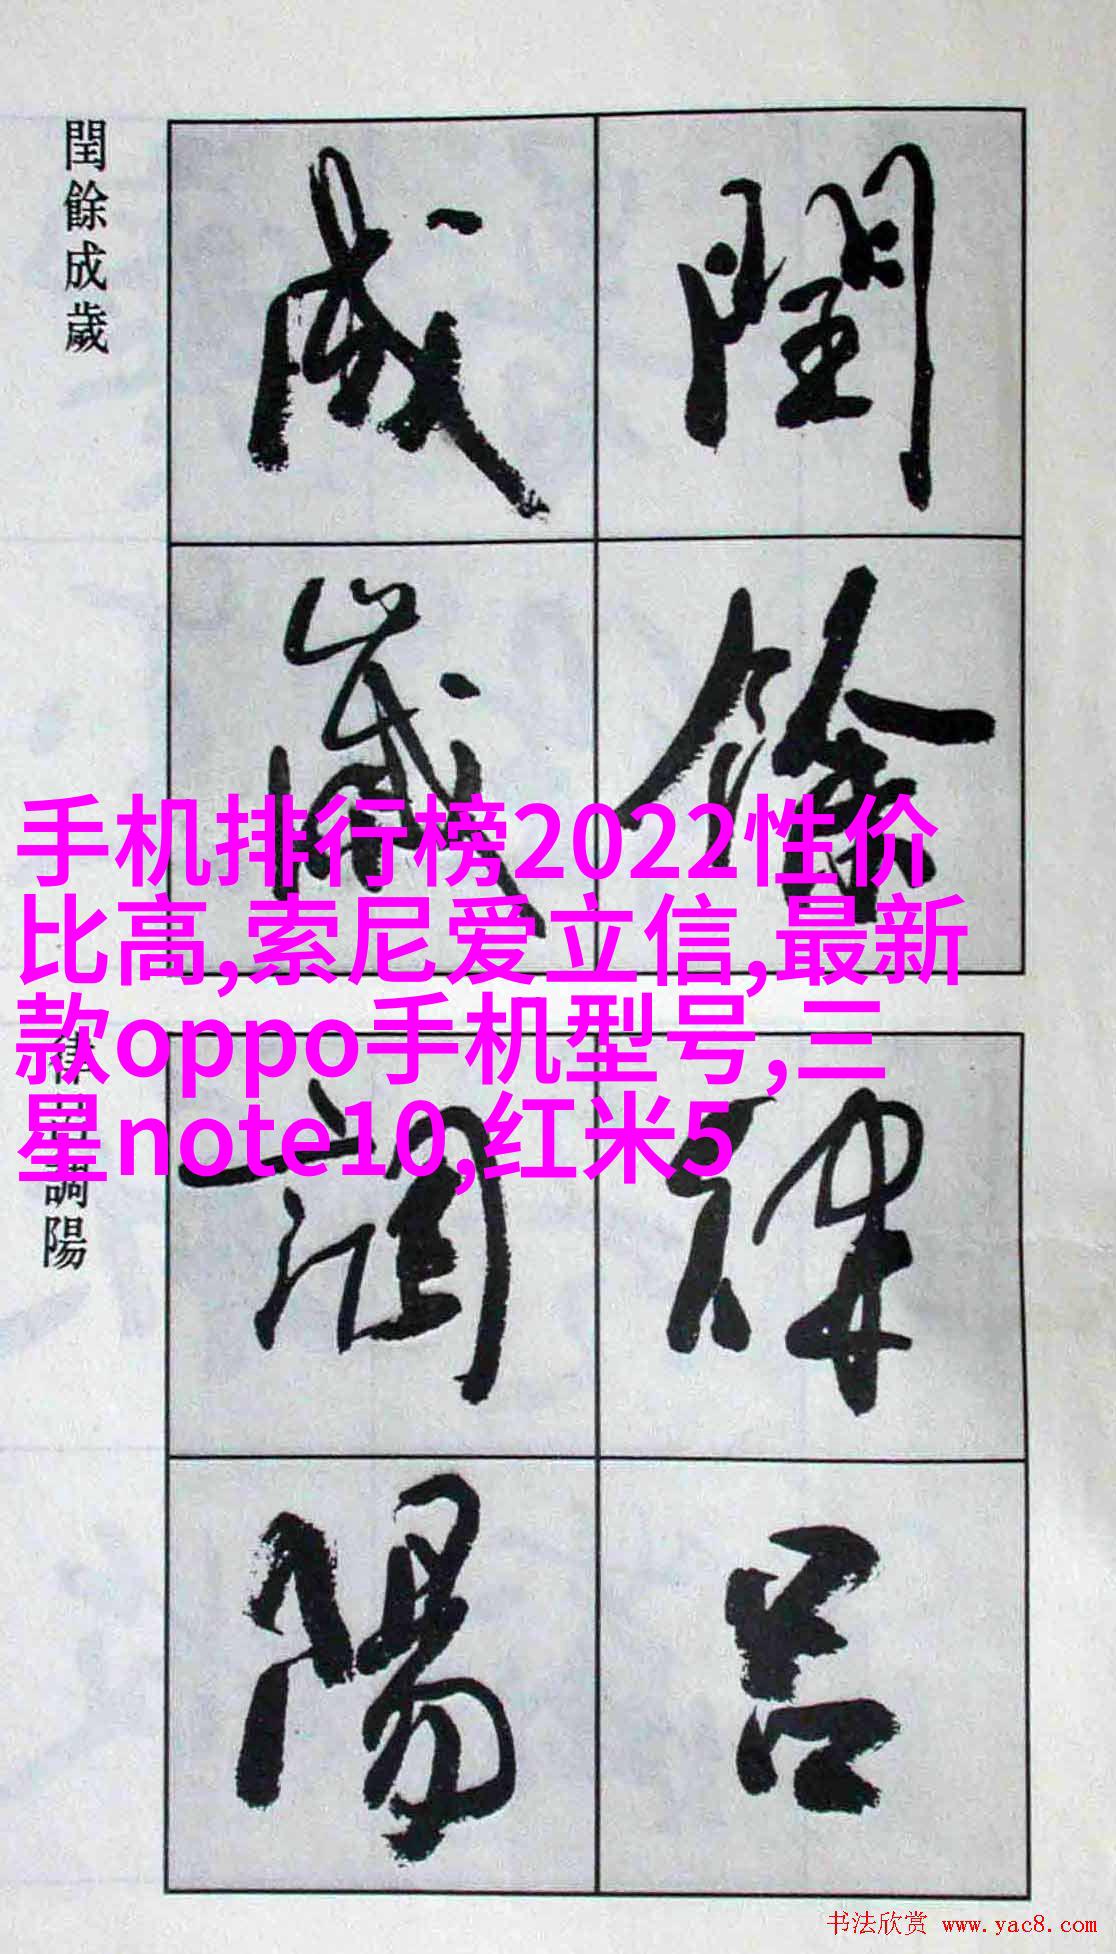 閏餘成歲
閏餘
成歲
手机排行榜2022性价
比高,索尼爱立信,最新
款oppo手机型号,三
星note10,红米5
律呂調陽
律呂
調陽
书法欣赏 www.yac8.com